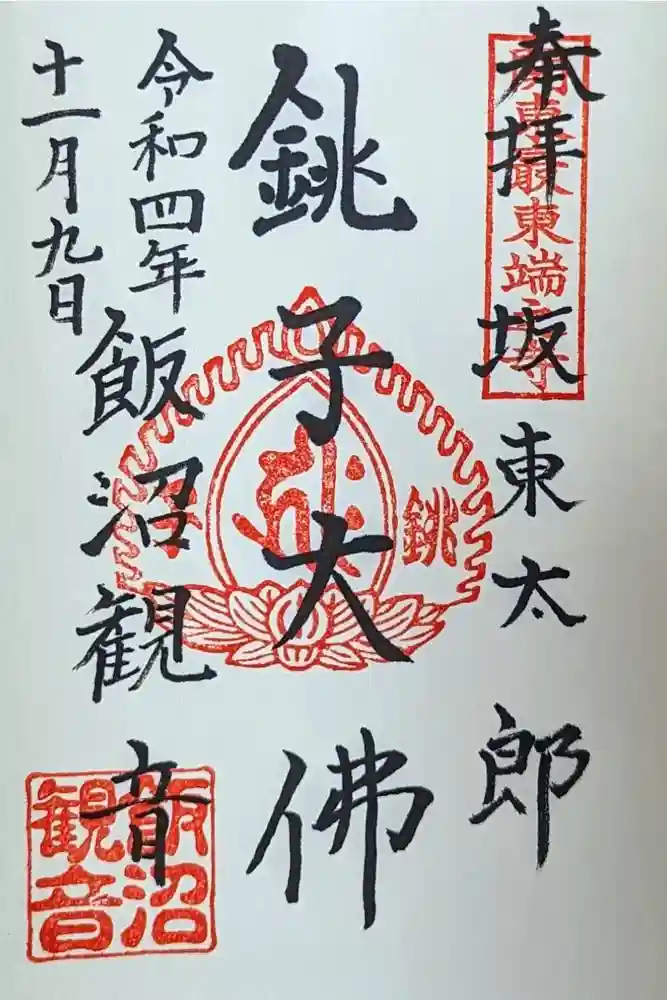 奉拝 坂東太郎
関東最東端の寺
銚子大佛
銚子
飯沼観音
令和四年
十一月九日
飯沼観音